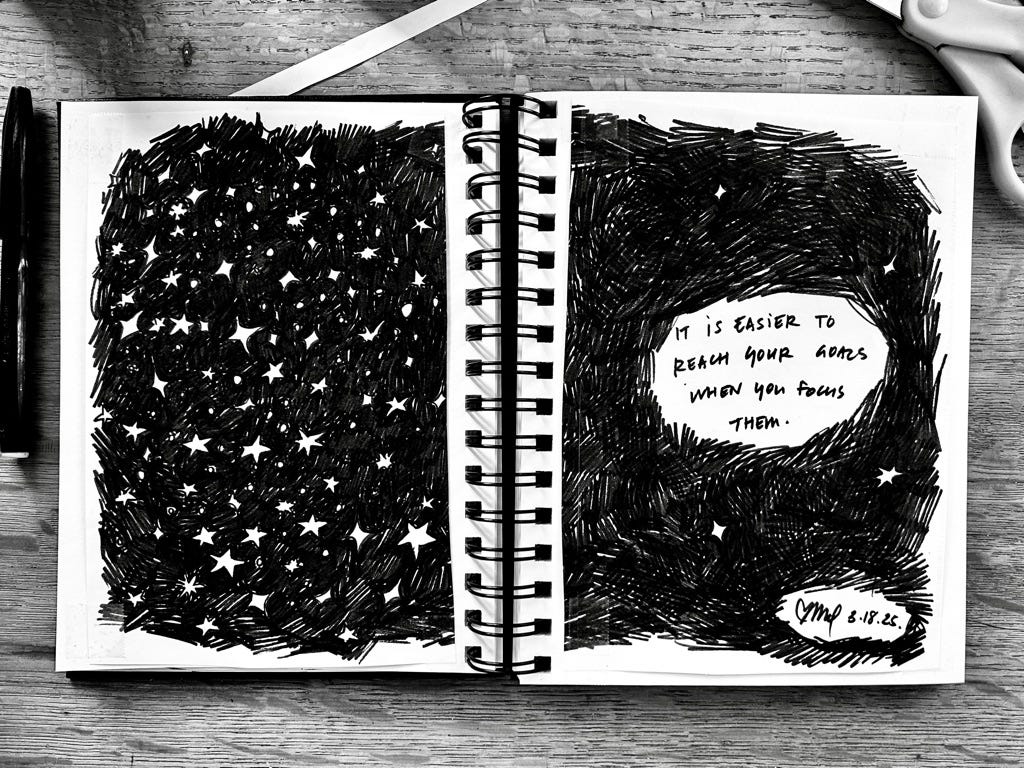 IT IS EASIER TO
REACH YOUR GOALS
WHEN YOU FOCUS
THEM.
3.18.25.